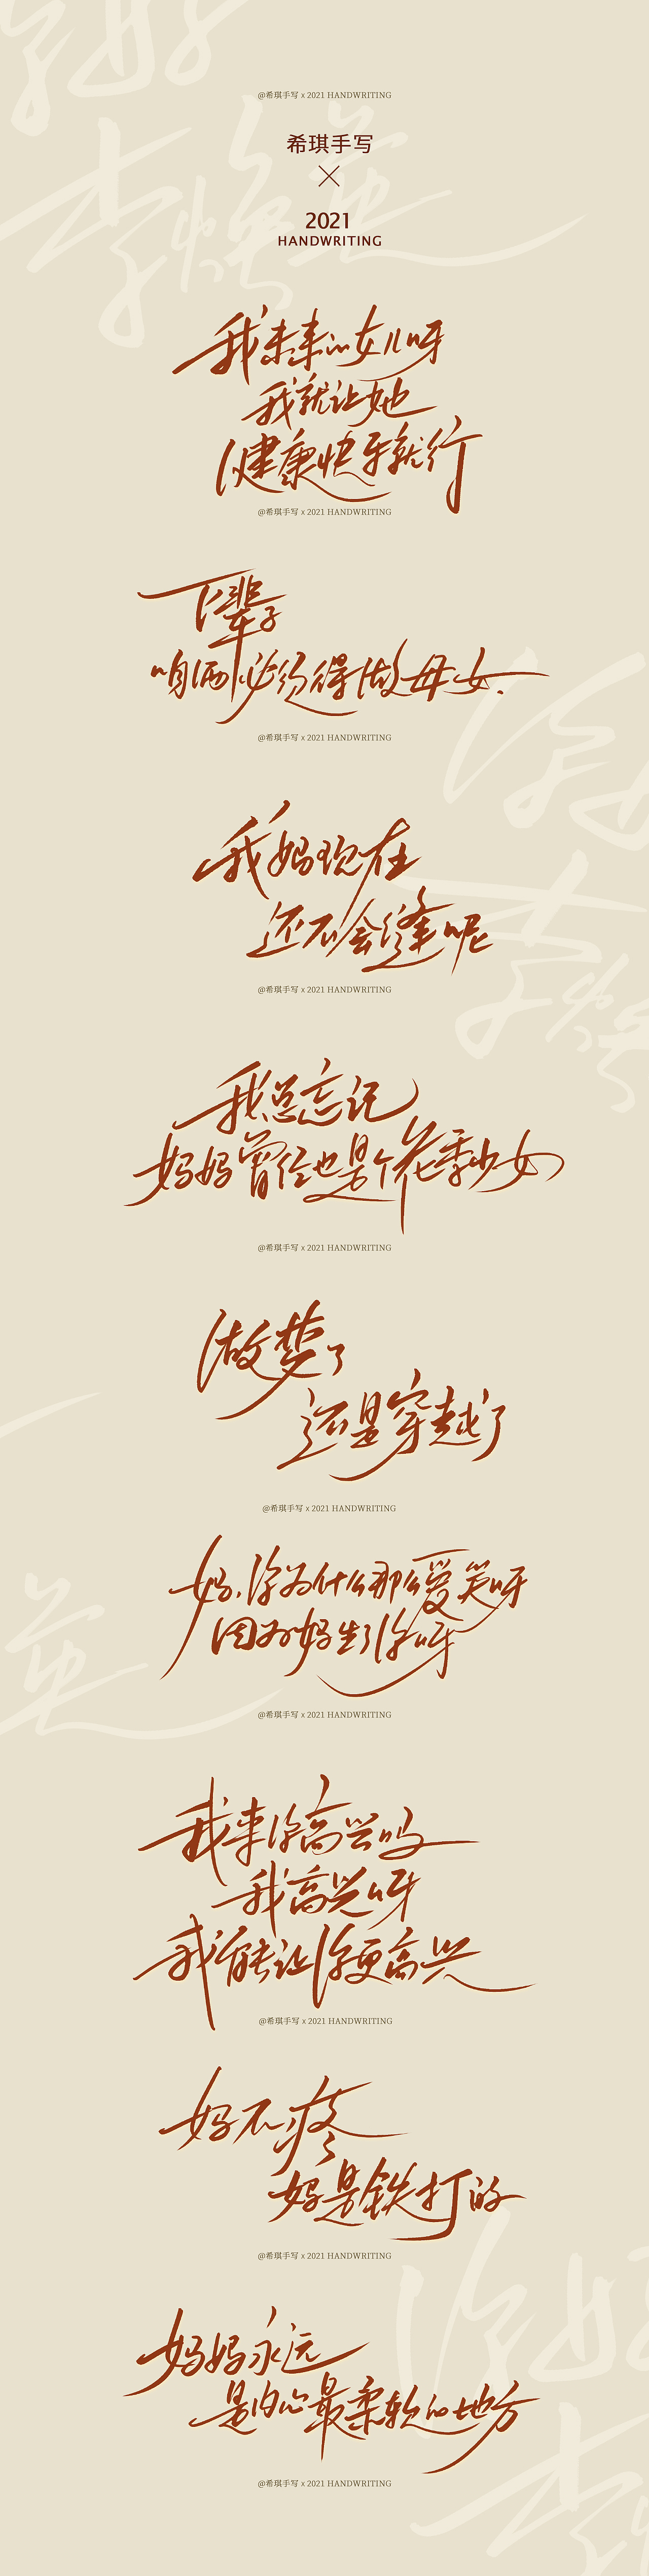 @希琪手写 x 2021 HANDWRITING
希琪手写
2021
HANDWRITING
我未来的女儿呀
我就让她
健康快乐就行
@希琪手写 x 2021 HANDWRITING
下辈子
咱俩必须得做母女
@希琪手写 x 2021 HANDWRITING
我妈现在
还不会缝呢
@希琪手写 x 2021 HANDWRITING
我总忘记
妈妈曾经也是个花季少女
@希琪手写 x 2021 HANDWRITING
做梦了
还是穿越了
@希琪手写 x 2021 HANDWRITING
妈,你为什么那么爱笑呀
因为妈生了你呀
@希琪手写 x 2021 HANDWRITING
我来你高兴吗
我高兴呀
我能让你更高兴
@希琪手写 x 2021 HANDWRITING
妈不疼
妈是铁打的
@希琪手写 x 2021 HANDWRITING
妈妈永远
是内心最柔软的地方
@希琪手写 x 2021 HANDWRITING
你好
李焕英